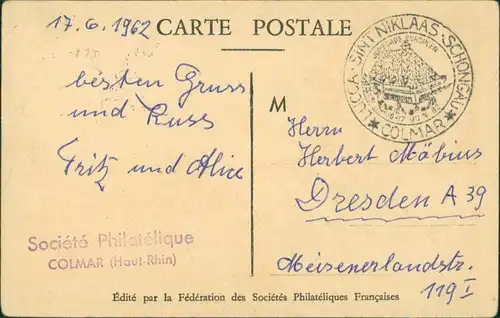 17.6.1962
CARTE POSTALE
LUCCA · SINT NIKLAAS · SCHONGAU
COLMAR
besten Gruss
und Kuss
Fritz und Alice
M
Herrn
Herbert Möbius
Dresden A 39
Meisenerlandstr.
119 I
Société Philatélique
COLMAR (Haut-Rhin)
Édité par la Fédération des Sociétés Philatéliques Françaises